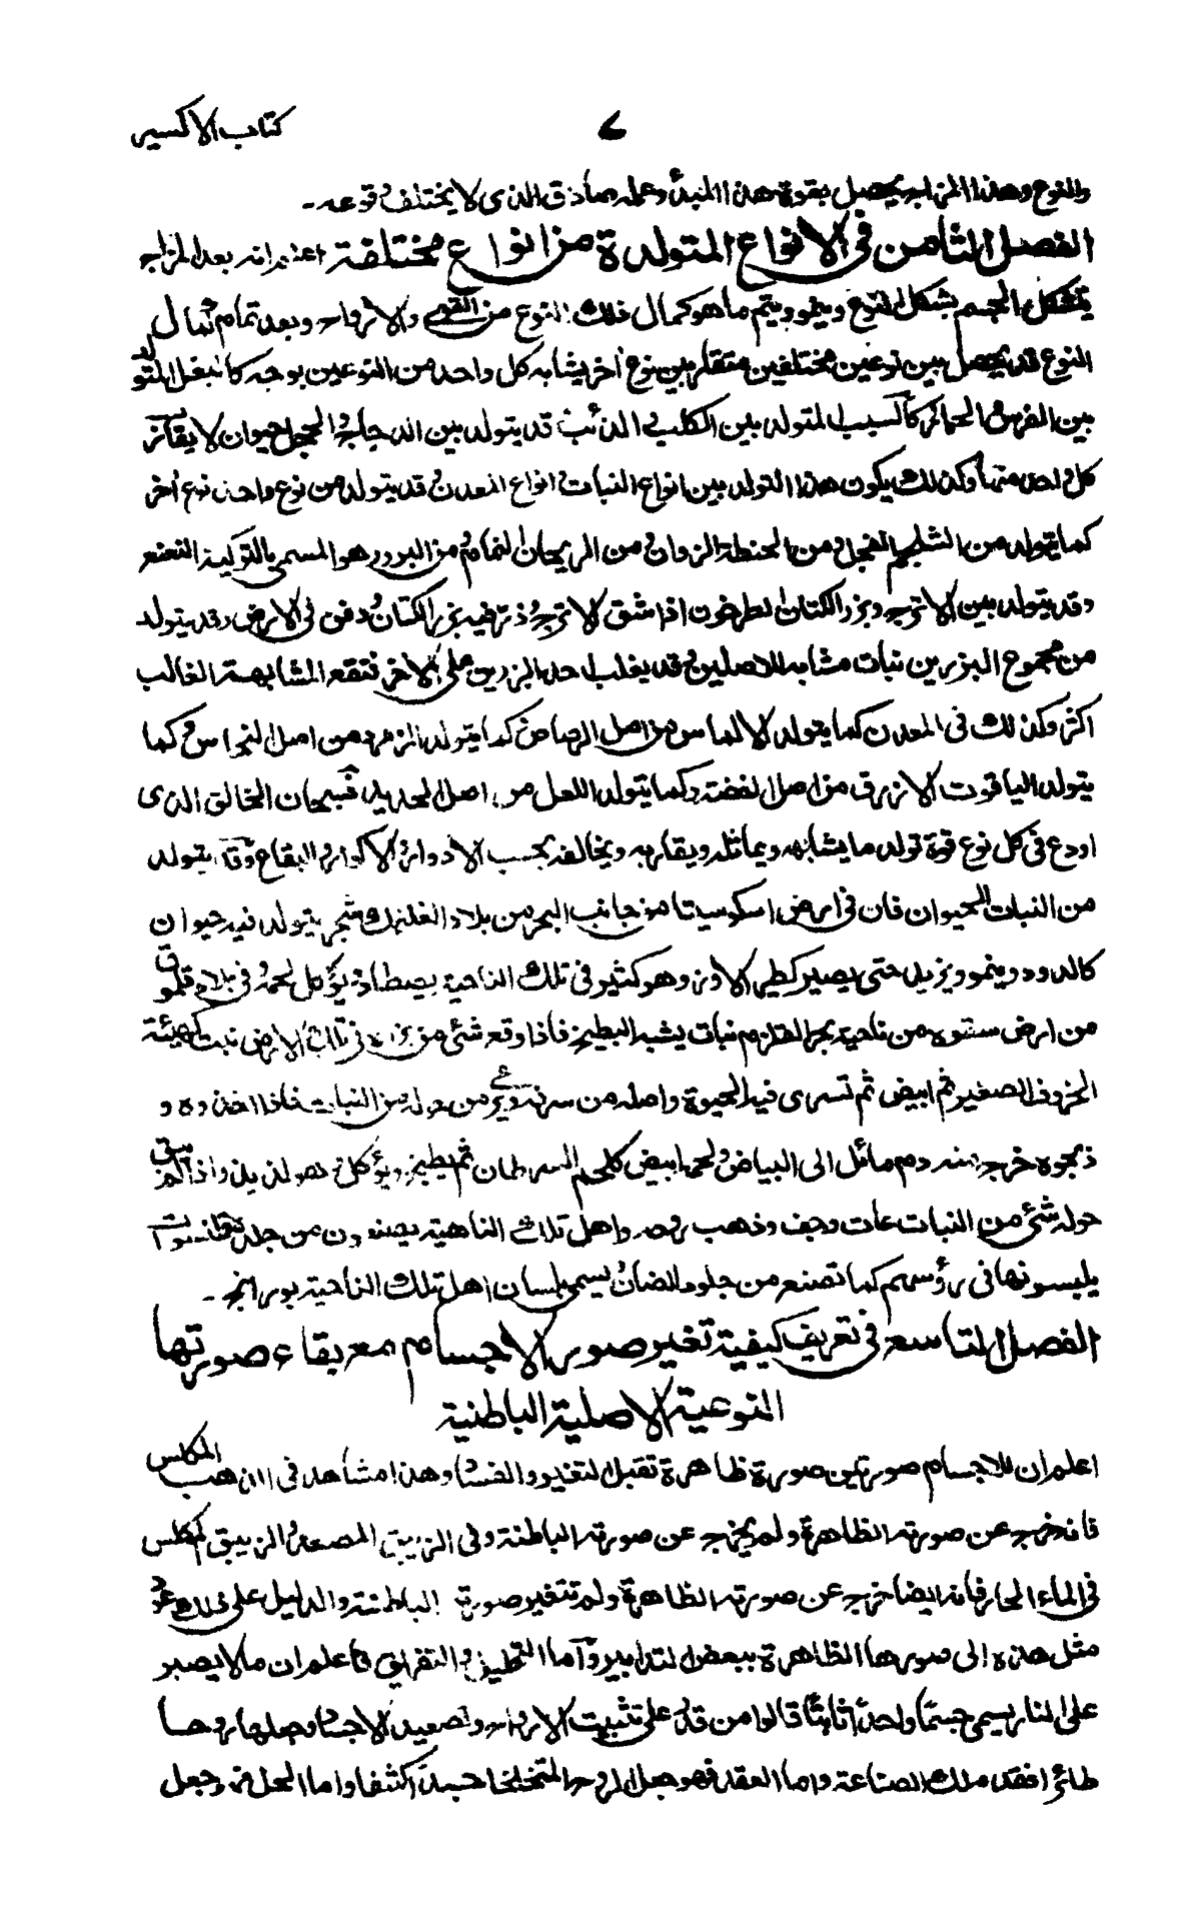 كتاب الاكسير
٧
والنوع وهذا المزاج يحصل بقوة هذا المبدأ وعمله صادق الذى لا يختلف قوعه -
الفصل الثامن فى الانواع المتولدة من انواع مختلفة اعلم انه بعد المزاج
يتشكل الجسم بشكل النوع وينمو ويتم ما هو كمال ذلك النوع من القوى والارواح وبعد تمام كمال
النوع قد يحصل بين نوعين مختلفين متقاربين نوع اخر يشابه كل واحد من النوعين بوجه كالبغل المتولد
بين الفرس والحمار كالسبب المتولد بين الكلب والذئب قد يتولد بين الدجاج والحجل حيوان لا يقارن
كل واحد منهما وكذلك يكون هذا التولد بين انواع النبات وانواع المعدن وقد يتولد من نوع واحد نوع اخر
كما يتولد من الشلجم الفجل ومن الحنطة الزوان ومن الريحان النمام ومن البرور هو المسمى بالتركية النعنع
وقد يتولد بين الاترج وبزر الكتان الطرخون اذا شق الاترج وذر فيه بزر الكتان ودفن فى الارض وقد يتولد
من مجموع البزرين نبات مشابه للاصلين وقد يغلب احد البزرين على الاخر فتقع المشابهة الغالب
اكثر وكذلك فى المعدن كما يتولد الالماس من اصل الرصاص كما يتولد الزمرد من اصل النحاس وكما
يتولد الياقوت الازرق من اصل الفضة وكما يتولد اللعل من اصل الحديد فسبحان الخالق الذى
اودع فى كل نوع قوة تولد ما يشابهه ويماثله ويقاربه ويخالفه بحسب الادوار والاكوار والبقاع وقد يتولد
من النبات الحيوان فان فى ارض اسكوسيتا من جانب البحر من بلاد الفلنك شجر يتولد فيه حيوان
كالدود وينمو ويزيد حتى يصير كطير الاوز وهو كثير فى تلك الناحية يصطاد ويؤكل لحمه وفى بلاد قلموق
من ارض ستوه من ناحية بحر القلزم نبات يشبه البطيخ فاذا وقع شئ من بزره فى تلك الارض نبت كهيئة
الخروف الصغير ثم ابيض ثم تسرى فيه الحيوة واصله من سرته ويرعى من حوله من النبات فاذا اخذوه و
ذبحوه خرج منه دم مائل الى البياض ولحم ابيض كلحم السرطان ثم يطبخ ويؤكل وهو لذيذ واذا لم يبق
حوله شئ من النبات مات وجف وذهب روحه واهل تلك الناحية يصنعون من جلده قلنسوات
يلبسونها فى رؤسهم كما تصنع من جلود الضان ويسمى بلسان اهل تلك الناحية بورانج -
الفصل التاسع فى تعريف كيفية تغير صور الاجسام مع بقاء صورتها
النوعية الاصلية الباطنية
اعلم ان للاجسام صورتين صورة ظاهرة تقبل التغير والفساد وهذا مشاهد فى الذهب المكلس
فانه خرج عن صورته الظاهرة ولم يخرج عن صورته الباطنة وفى الزيبق المصعد والزيبق المكلس
فى الماء الحار فانه ايضا خرج عن صورته الظاهرة ولم تتغير صورته الباطنة والدليل على ذلك عود
مثل هذه الى صورها الظاهرة ببعض التدابير واما التحليل والتفريق فاعلم ان ما لا يصبر
على النار يسمى جسما واحدا ثابتا قالوا من قدر على تثبيت الارواح وتصعيد الاجساد وجعلها روحا
طائرا فقد ملك الصناعة واما العقد فهو جعل الروح المتخلخل جسدا كثيفا واما الحل فهو جعل